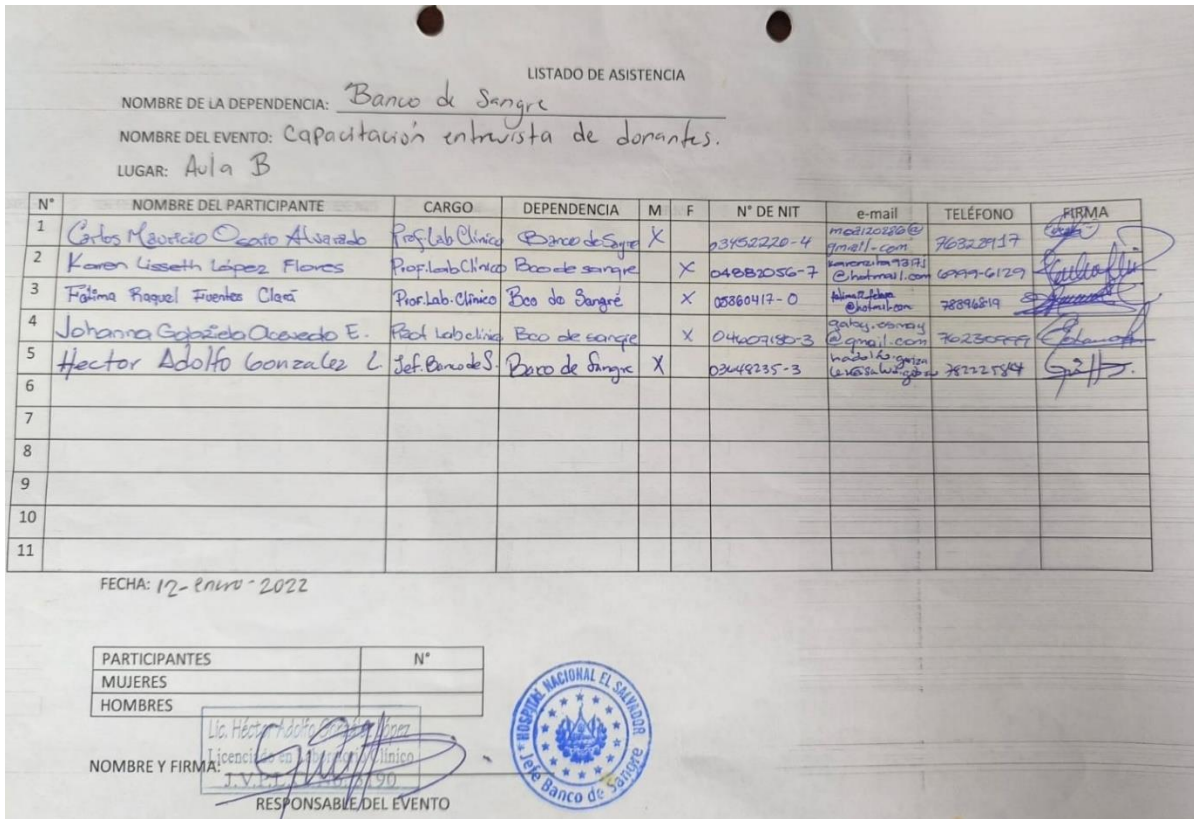 LISTADO DE ASISTENCIA
NOMBRE DE LA DEPENDENCIA: Banco de Sangre
NOMBRE DEL EVENTO: Capacitación entrevista de donantes.
LUGAR: Aula B
N° NOMBRE DEL PARTICIPANTE CARGO DEPENDENCIA M F N° DE NIT e-mail TELÉFONO FIRMA
1 Carlos Mauricio Alvarado Prof. Lab Clínico Banco de Sagre X 03452220-4 @gmail.com 76328917
2 Karen Lisseth López Flores Prof. Lab Clínico Bco de sangre X 04882056-7 @hotmail.com 6999-6129
3 Fátima Raquel Fuentes Clará Prof. Lab. Clínico Bco de Sangre X 05860417-0 @hotmail.com 78896819
4 Johanna Gabriela Acevedo E. Prof Lab clinico Bco de sangre X @gmail.com
5 Hector Adolfo Gonzalez L. Jef. Banco de S. Banco de Sangre X 03648235-3
6
7
8
9
10
11
FECHA: 12-enero-2022
PARTICIPANTES N°
MUJERES
HOMBRES
Lic. Héctor Adolfo González López
Licenciado en Laboratorio Clínico
NOMBRE Y FIRMA:
RESPONSABLE DEL EVENTO
HOSPITAL NACIONAL EL SALVADOR
Jefe Banco de Sangre